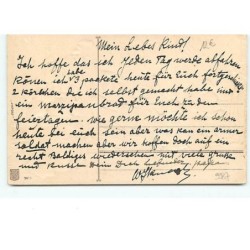 Mein Liebes Kind!
Ich hoffe das ich jeden Tag werde abfahren
können ich habe 3 packete heute für Euch fortgeschickt
2 körbchen die ich selbst gemacht habe und
ein Marzipanbrod für Euch zu den
feiertagen. wie gerne möchte ich schon
heute bei euch sein aber was kan ein armer
soldat machen aber wir hoffen doch auf ein
recht Baldiges wiedersehen mit viele grüße
und küssen